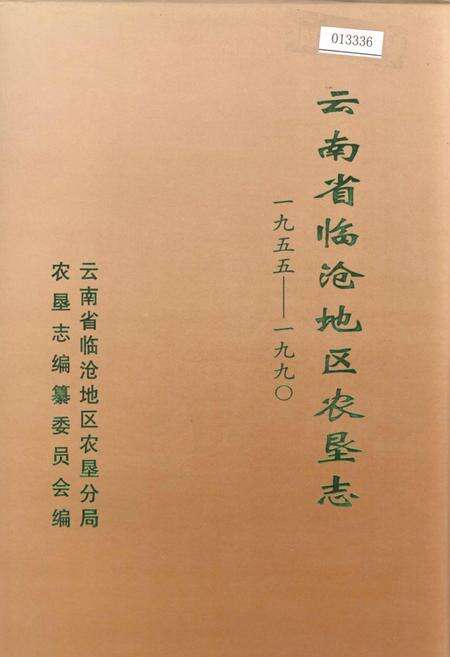 013336
云南省临沧地区农垦志
一九五五——一九九〇
云南省临沧地区农垦分局
农垦志编纂委员会编